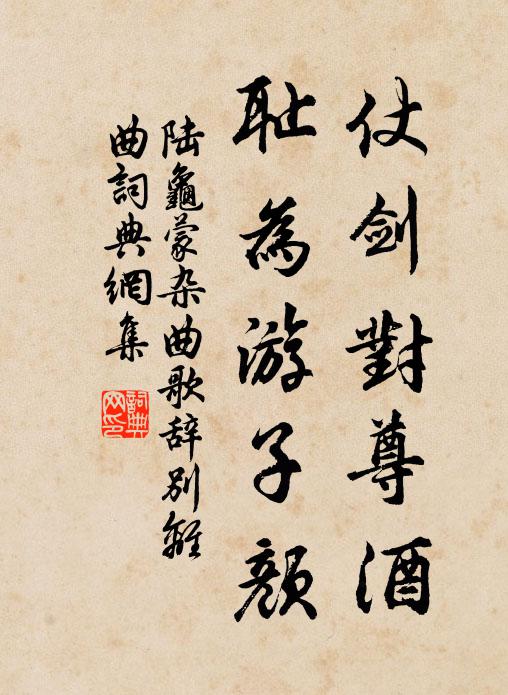 仗剑對尊酒
耻為游子顔
陆龜蒙杂曲歌辞别離
曲詞典網集
詞典
网印